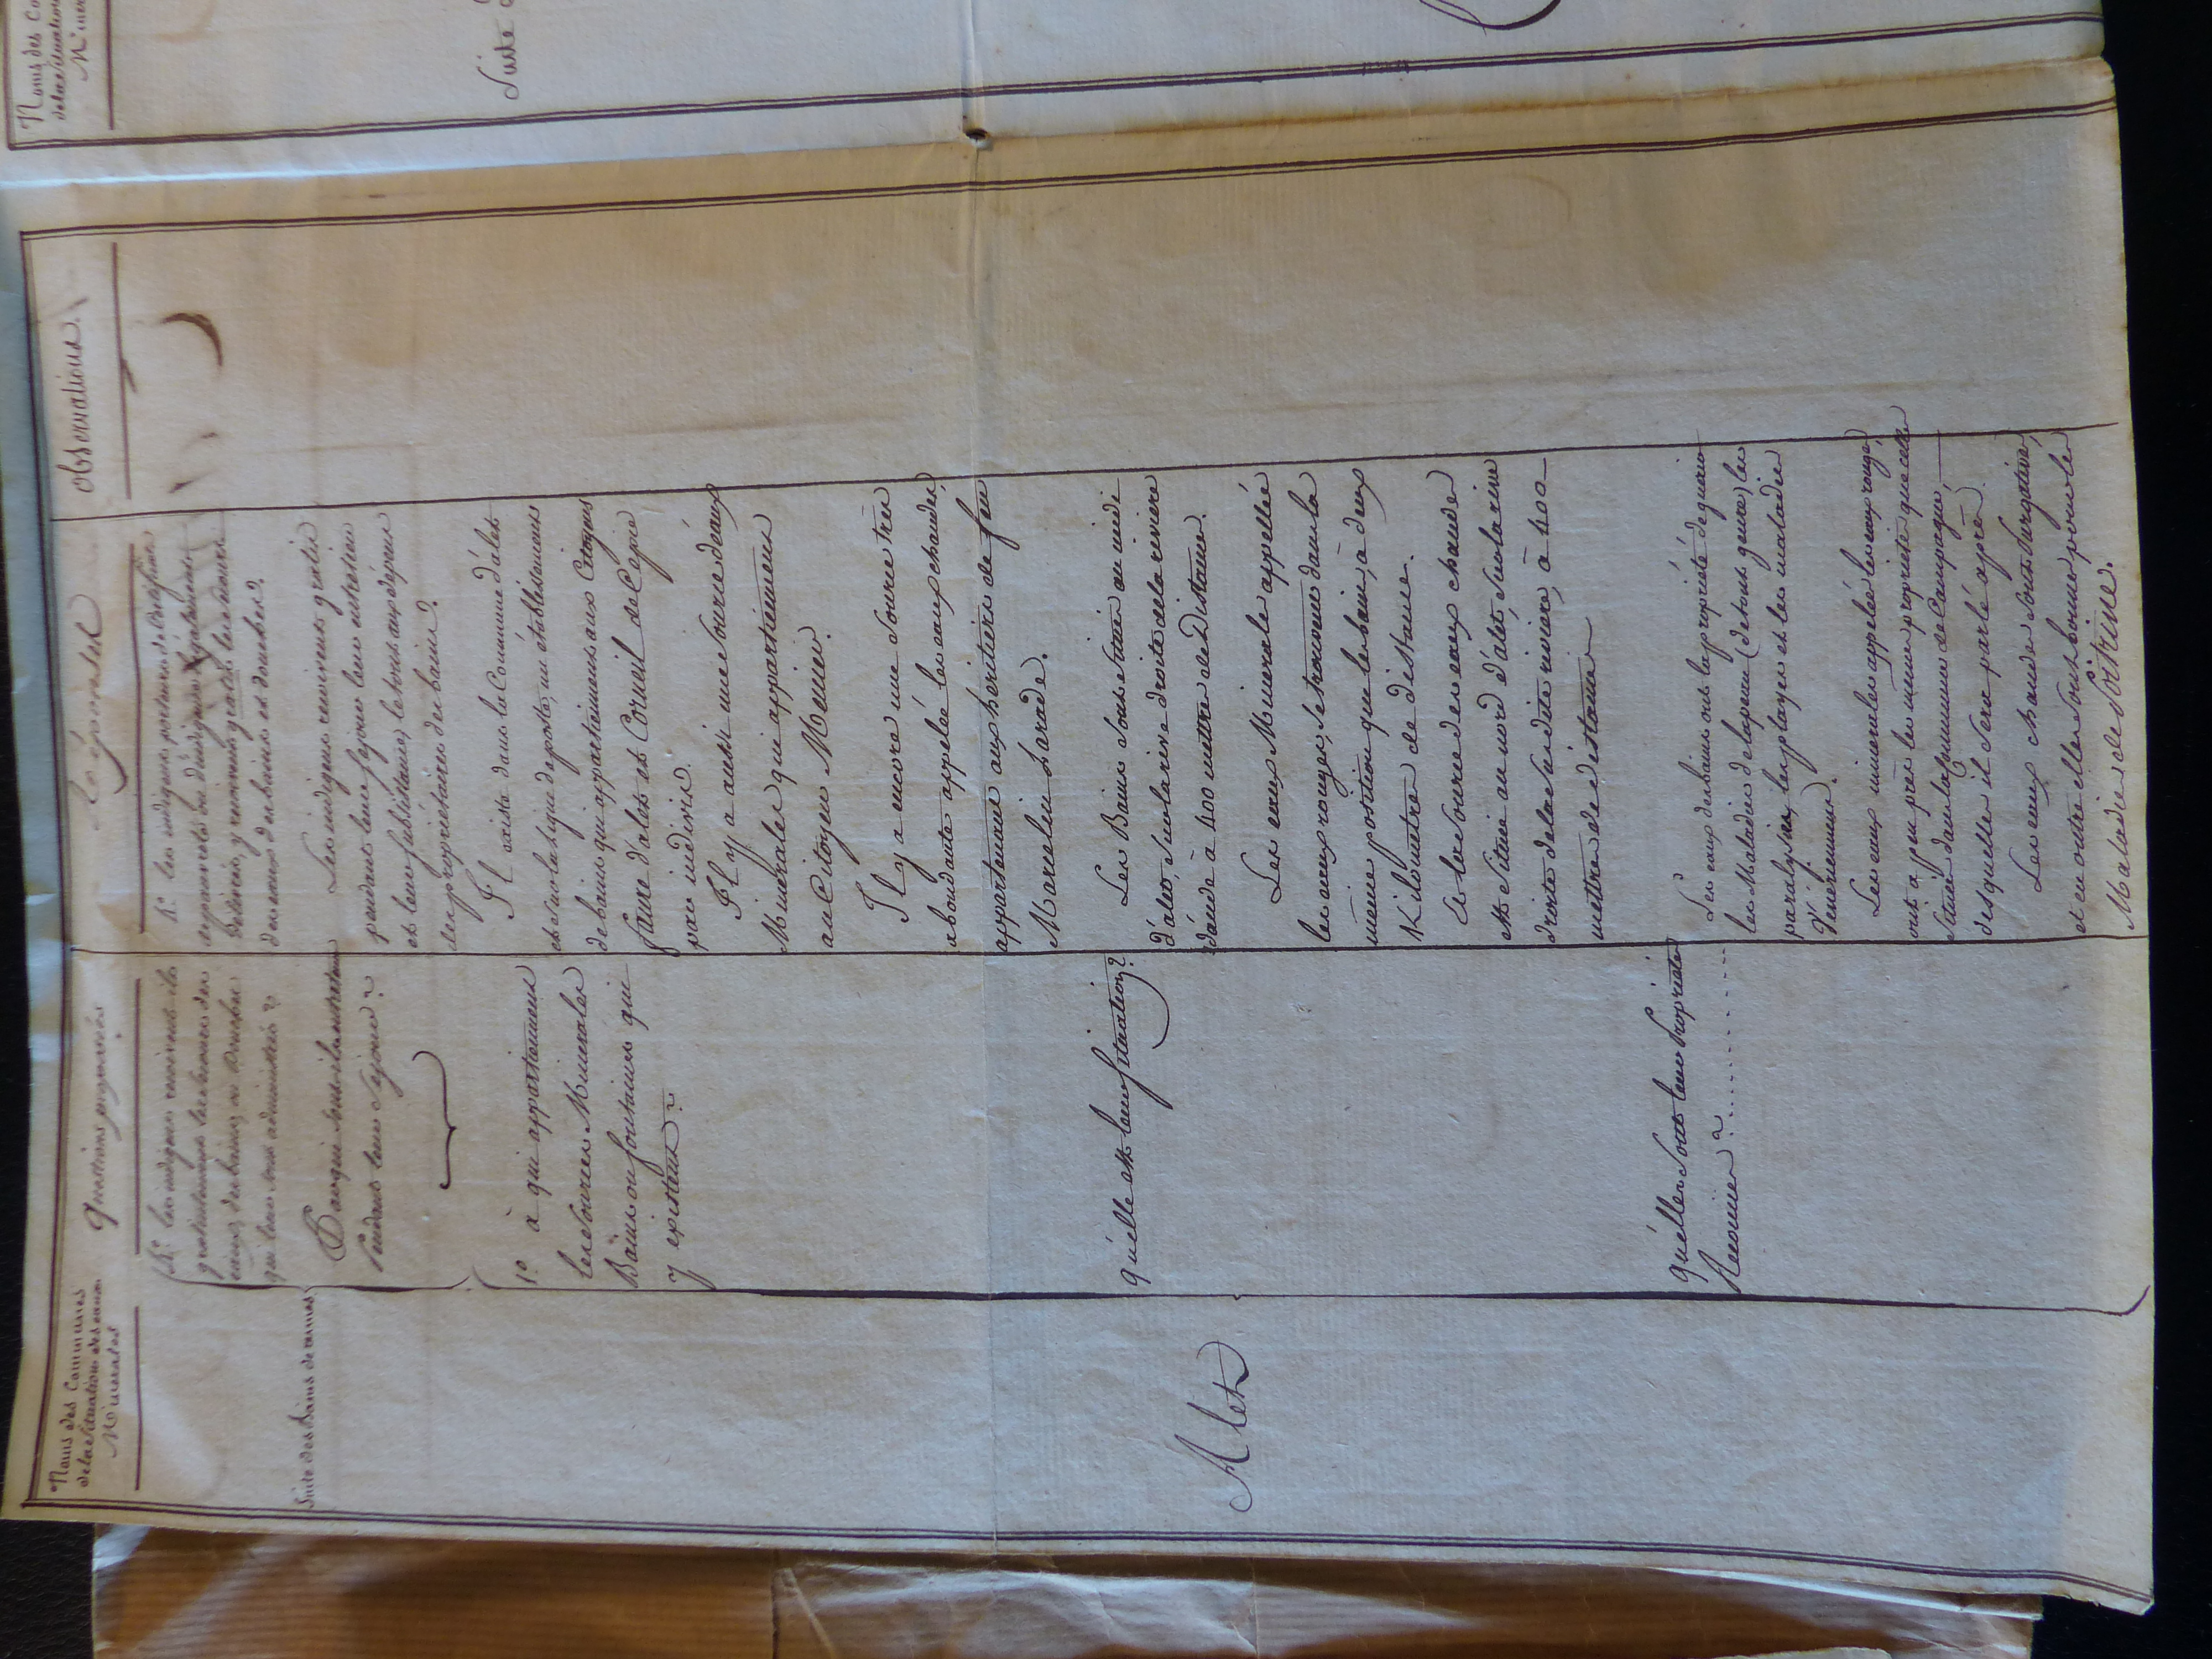 Noms des Communes
de la Situation des eaux
Minerales
Questions proposées
Réponses
Observations.
Suite des Bains de rennes
R.e les indigens reçoivent-ils
gratuitement les secours des
eaux, des bains, ou Douches
qui leur sont administrés ?
Par qui sont-ils entretenus
Pendant leur Séjour ?
R.e les indigens porteurs de Certificats
d'indigence légalement
délivrés, y recoivent gratis les secours
des eaux des bains et douches.
Les indigens recoivent gratis
pendant leur séjour leur entretien
et leur subsistance, le tout aux dépens
des propriétaires des bains.
Alet
1.o à qui appartiennent
les Sources Minerales
Bains ou fontaines qui
y existent ?
Il existe dans la Commune d'alet
et sur la ligne de poste, un établissement
de bains qui appartiennent aux Citoyens
faure d'alet et Corneil de Cépie
par indivis.
Il y a aussi une Source d'eaux
Minerales qui appartiennent
au Citoyen Mercier.
Il y a encore une Source très
abondante appelée les eaux chaudes,
appartenant aux héritiers de feu
Marcelin Larade.
quelle est leur Situation ?
Les Bains sont situés au midi
d'alet, sur la rive droite de la riviere
d'aude à 400 mettres de Distance.
Les eaux Minerales appellées
les eaux rouges, se trouvent dans la
même position que les bains, à deux
Kilometres de distance.
et la Source des eaux chaudes
est située au nord d'alet, sur la rive
droite de la susdite riviere, à 400
mettres de distance
quelles sont leur Propriétés
Reconnues ? ..........
Les eaux des bains ont la propriété de guérir
les Maladies de la peau (de tout genre) les
paralysies, les playes et les maladies
Vénériennes.
Les eaux minerales appelées les eaux rouges,
ont à peu près les mêmes propriétés que celles
situées dans la Commune de Campagne,
desquelles il sera parlé après.
Les eaux chaudes sont Purgatives,
et en outre elles sont bonnes pour les
Maladies de Poitrine.
Noms des Co
de la Situation
Miner
Suite